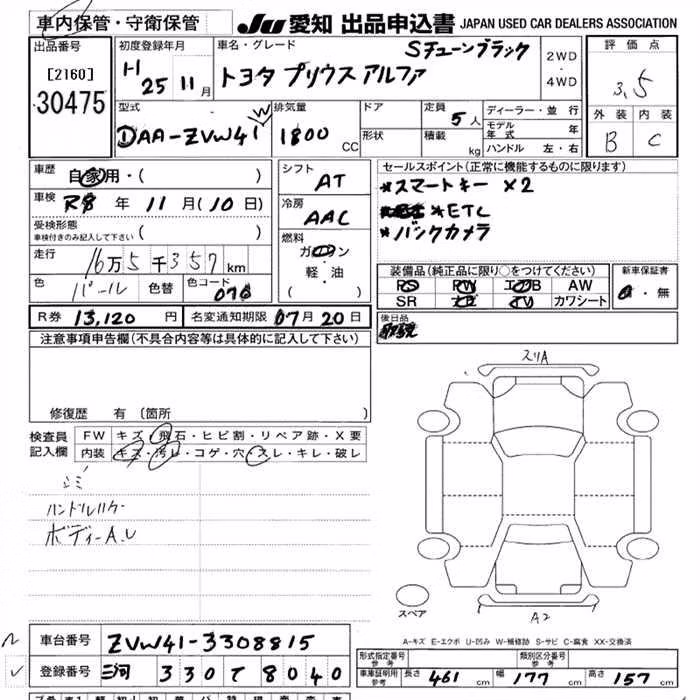 車内保管・守衛保管
JU 愛知 出品申込書 JAPAN USED CAR DEALERS ASSOCIATION
出品番号
[2160]
30475
初度登録年月
H 25年 11月
車名・グレード
Sチューンブラック
トヨタ プリウス アルファ
2WD
・
4WD
評価点
3.5
外装 内装
B C
型式
DAA-ZVW41W
排気量
1800 CC
ドア
形状
定員 5人
積載 kg
ディーラー・並行
モデル年式 年
ハンドル 左・右
車歴 自家用・( )
車検 R8年 11月(10日)
受検形態
車検付きのみ記入して下さい ( )
走行 16万5千357km
色 パール 色替 色コード 070
シフト
AT
冷房
AAC
燃料
ガソリン
・
軽・油
( )
セールスポイント(正常に機能するものに限ります)
*スマートキー ×2
*ETC
*バックカメラ
装備品(純正品に限り○をつけてください)
PS PW エアB AW
SR ナビ TV カワシート
新車保証書
有・無
R券 13,120円 名変通知期限 07月20日
後日品
注意事項申告欄(不具合内容等は具体的に記入して下さい)
修復歴 有 (箇所 )
検査員
記入欄
FW キズ・飛石・ヒビ割・リペア跡・X要
内装 キズ・汚レ・コゲ・穴・スレ・キレ・破レ
シミ
ボディーA.U
スリA
A2
スペア
A-キズ E-エクボ U-凹み W-補修跡 S-サビ C-腐食 XX-交換済
車台番号 ZVW41-3308815
登録番号 三河 330 て 8040
形式指定番号
参考
類別区分番号
参考
車庫証明用
参考
長さ 461cm 幅 177cm 高さ 157cm